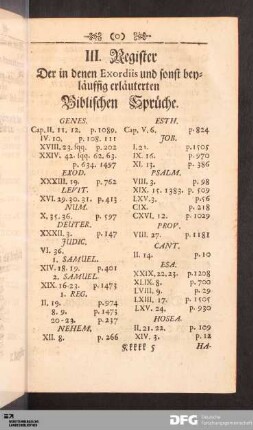 (o)
III. Register
Der in denen Exordiis und sonst bey-
läuffig erläuterten
Biblischen Sprüche.
GENES.
Cap. II. 11. 12. p. 1089.
IV. 10. p. 108. 111
XVIII. 23. sqq. p. 202
XXIV. 42. sqq. 62. 63.
p. 634. 1457
EXOD.
XXXIII. 19. p. 762
LEVIT.
XVI. 29. 30. 31. p. 413
NUM.
X. 35. 36. p. 597
DEUTER.
XXXII. 3. p. 147
JUDIC.
VI. 36.
1. SAMUEL.
XIV. 18. 19. p. 401
2. SAMUEL.
XIX. 16-23. p. 1473
1. REG.
II. 19. p. 974
8. 9. p. 1473
20-23. p. 237
NEHEM.
XII. 8. p. 266
ESTH.
Cap. V. 6. p. 824
JOB.
I. 21. p. 1505
IX. 16. p. 970
XI. 13. p. 386
PSALM.
VIII. 3. p. 98
XIX. 15. 1383. p. 509
LXV. 3. p. 56
CIX. p. 218
CXVI. 12. p. 1029
PROV.
VIII. 27. p. 1181
CANT.
II. 14. p. 10
ESA.
XXIX. 22. 23. p. 1208
XLIX. 8. p. 700
LVIII. 9. p. 29
LXIII. 17. p. 1505
LXV. 24. p. 930
HOSEA.
II. 21. 22. p. 109
XIV. 3. p. 12
Kkkkk 5 HA-
DFG
Deutsche
Forschungsgemeinschaft